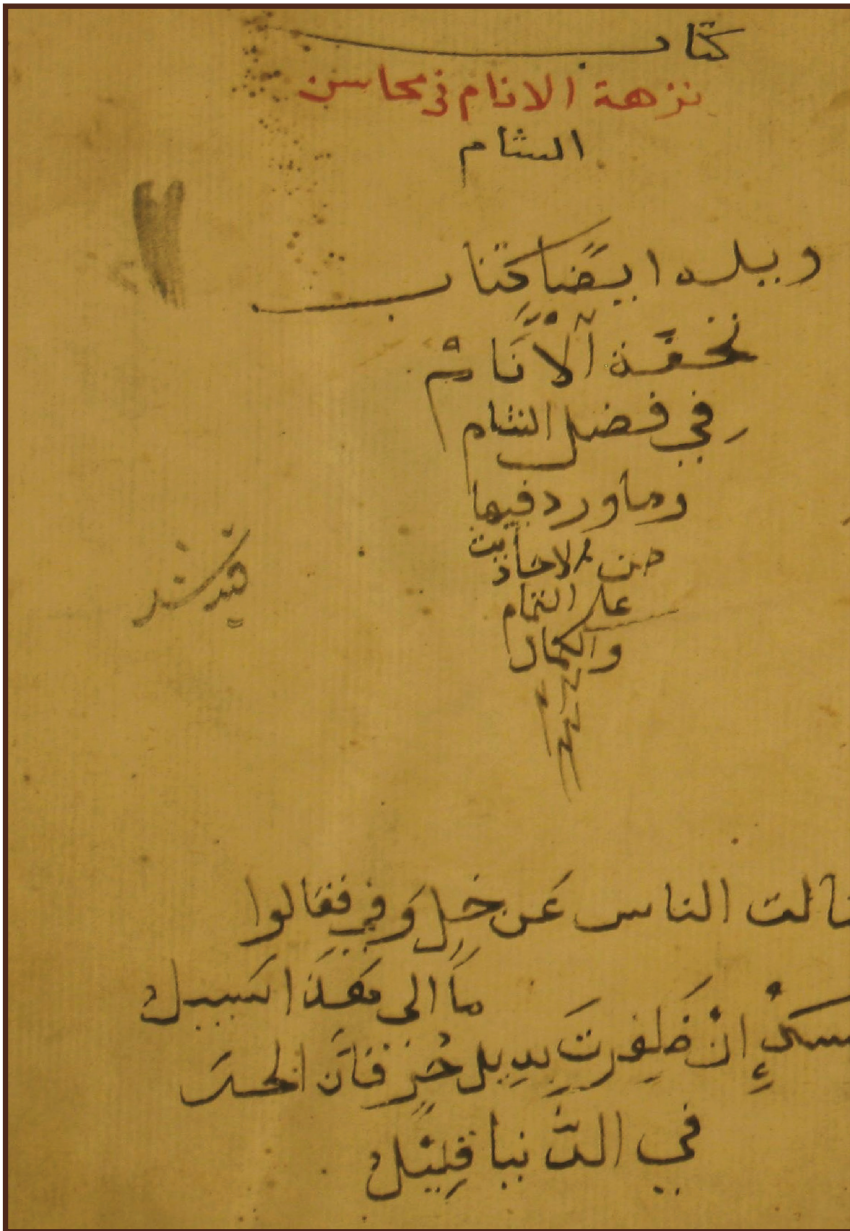 كتاب
نزهة الانام في محاسن
الشام
ويليه ايضًا كتاب
تحفة الْأَنَام
في فضل الشام
وما ورد فيها
من الاحاديث
على التمام
والكمال
الناس عَن خِلٍ وَفي فقالوا
مَا الى هَذا سَبيل
إِنْ ظفرتَ بِديل حُرٍ فَانَ الحرَ
في الدُّنيا قليل